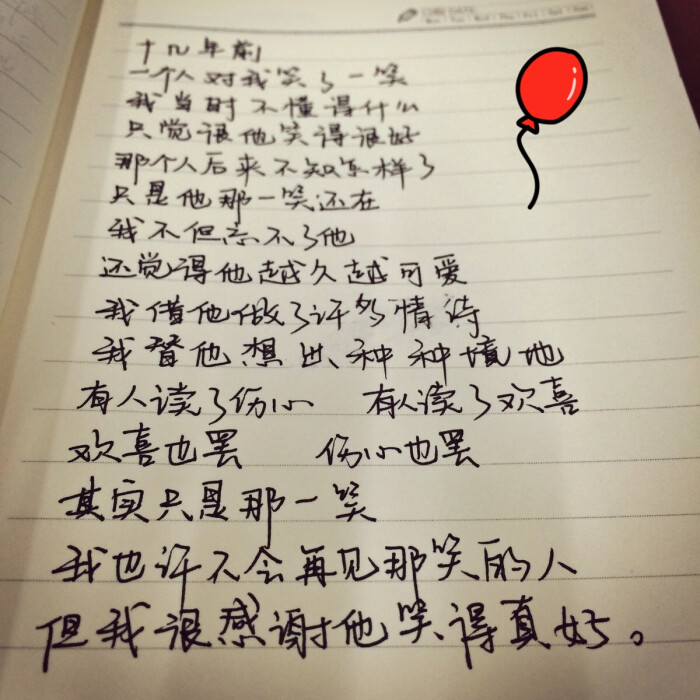 十几年前
一个人对我笑了一笑
我当时不懂得什么
只觉很他笑得很好
那个人后来不知怎样了
只是他那一笑还在
我不但忘不了他
还觉得他越久越可爱
我借他做了许多情诗
我替他想出种种境地
有人读了伤心 有人读了欢喜
欢喜也罢 伤心也罢
其实只是那一笑
我也许不会再见那笑的人
但我很感谢他笑得真好。